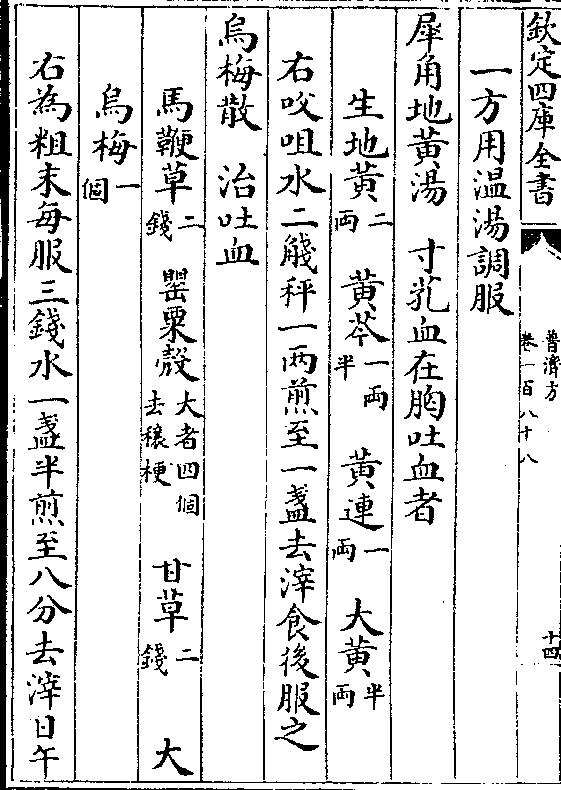 欽定四庫全書
普濟方
卷一百八十八
十四
一方用温湯調服
犀角地黄湯　寸芤血在胸吐血者
生地黄二兩　黄芩一兩半　黄連一兩　大黄半兩
右㕮咀水二觥秤一兩煎至一盞去滓食後服之
烏梅散　治吐血
馬鞭草二錢　罌粟殻大者四個去穰梗　甘草二錢　大
烏梅一個
右為粗末每服三錢水一盞半煎至八分去滓日午